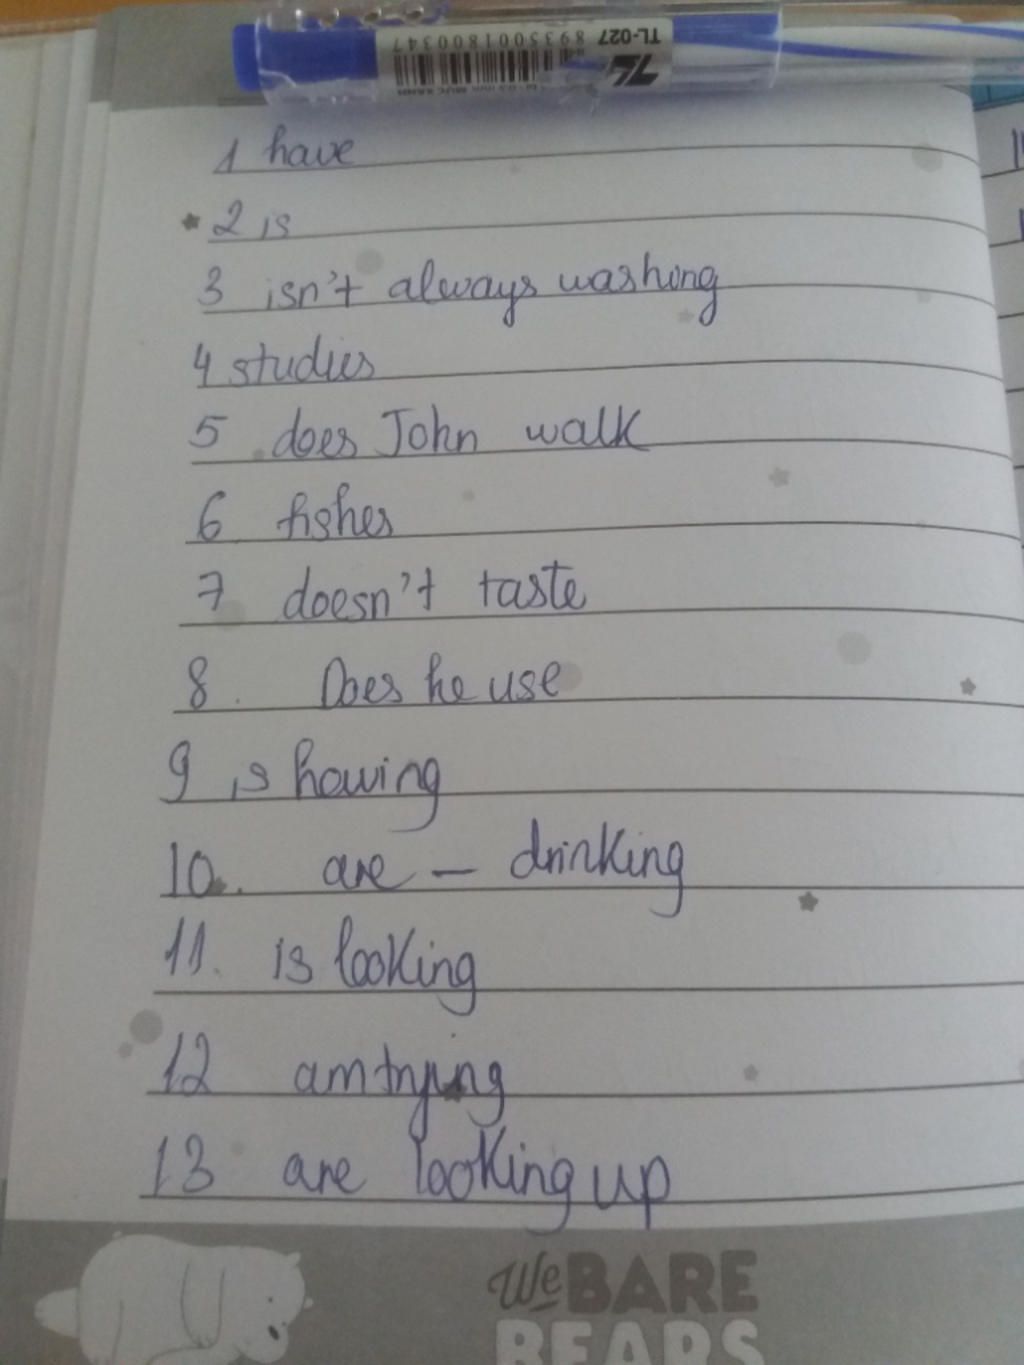 TL-027
8935001800347
1 have
2 is
3 isn't always washing
4 studies
5 does John walk
6 fishes
7 doesn't taste
8. Does he use
9 is having
10. are – drinking
11. is looking
12 am trying
13 are looking up
We BARE
BEARS